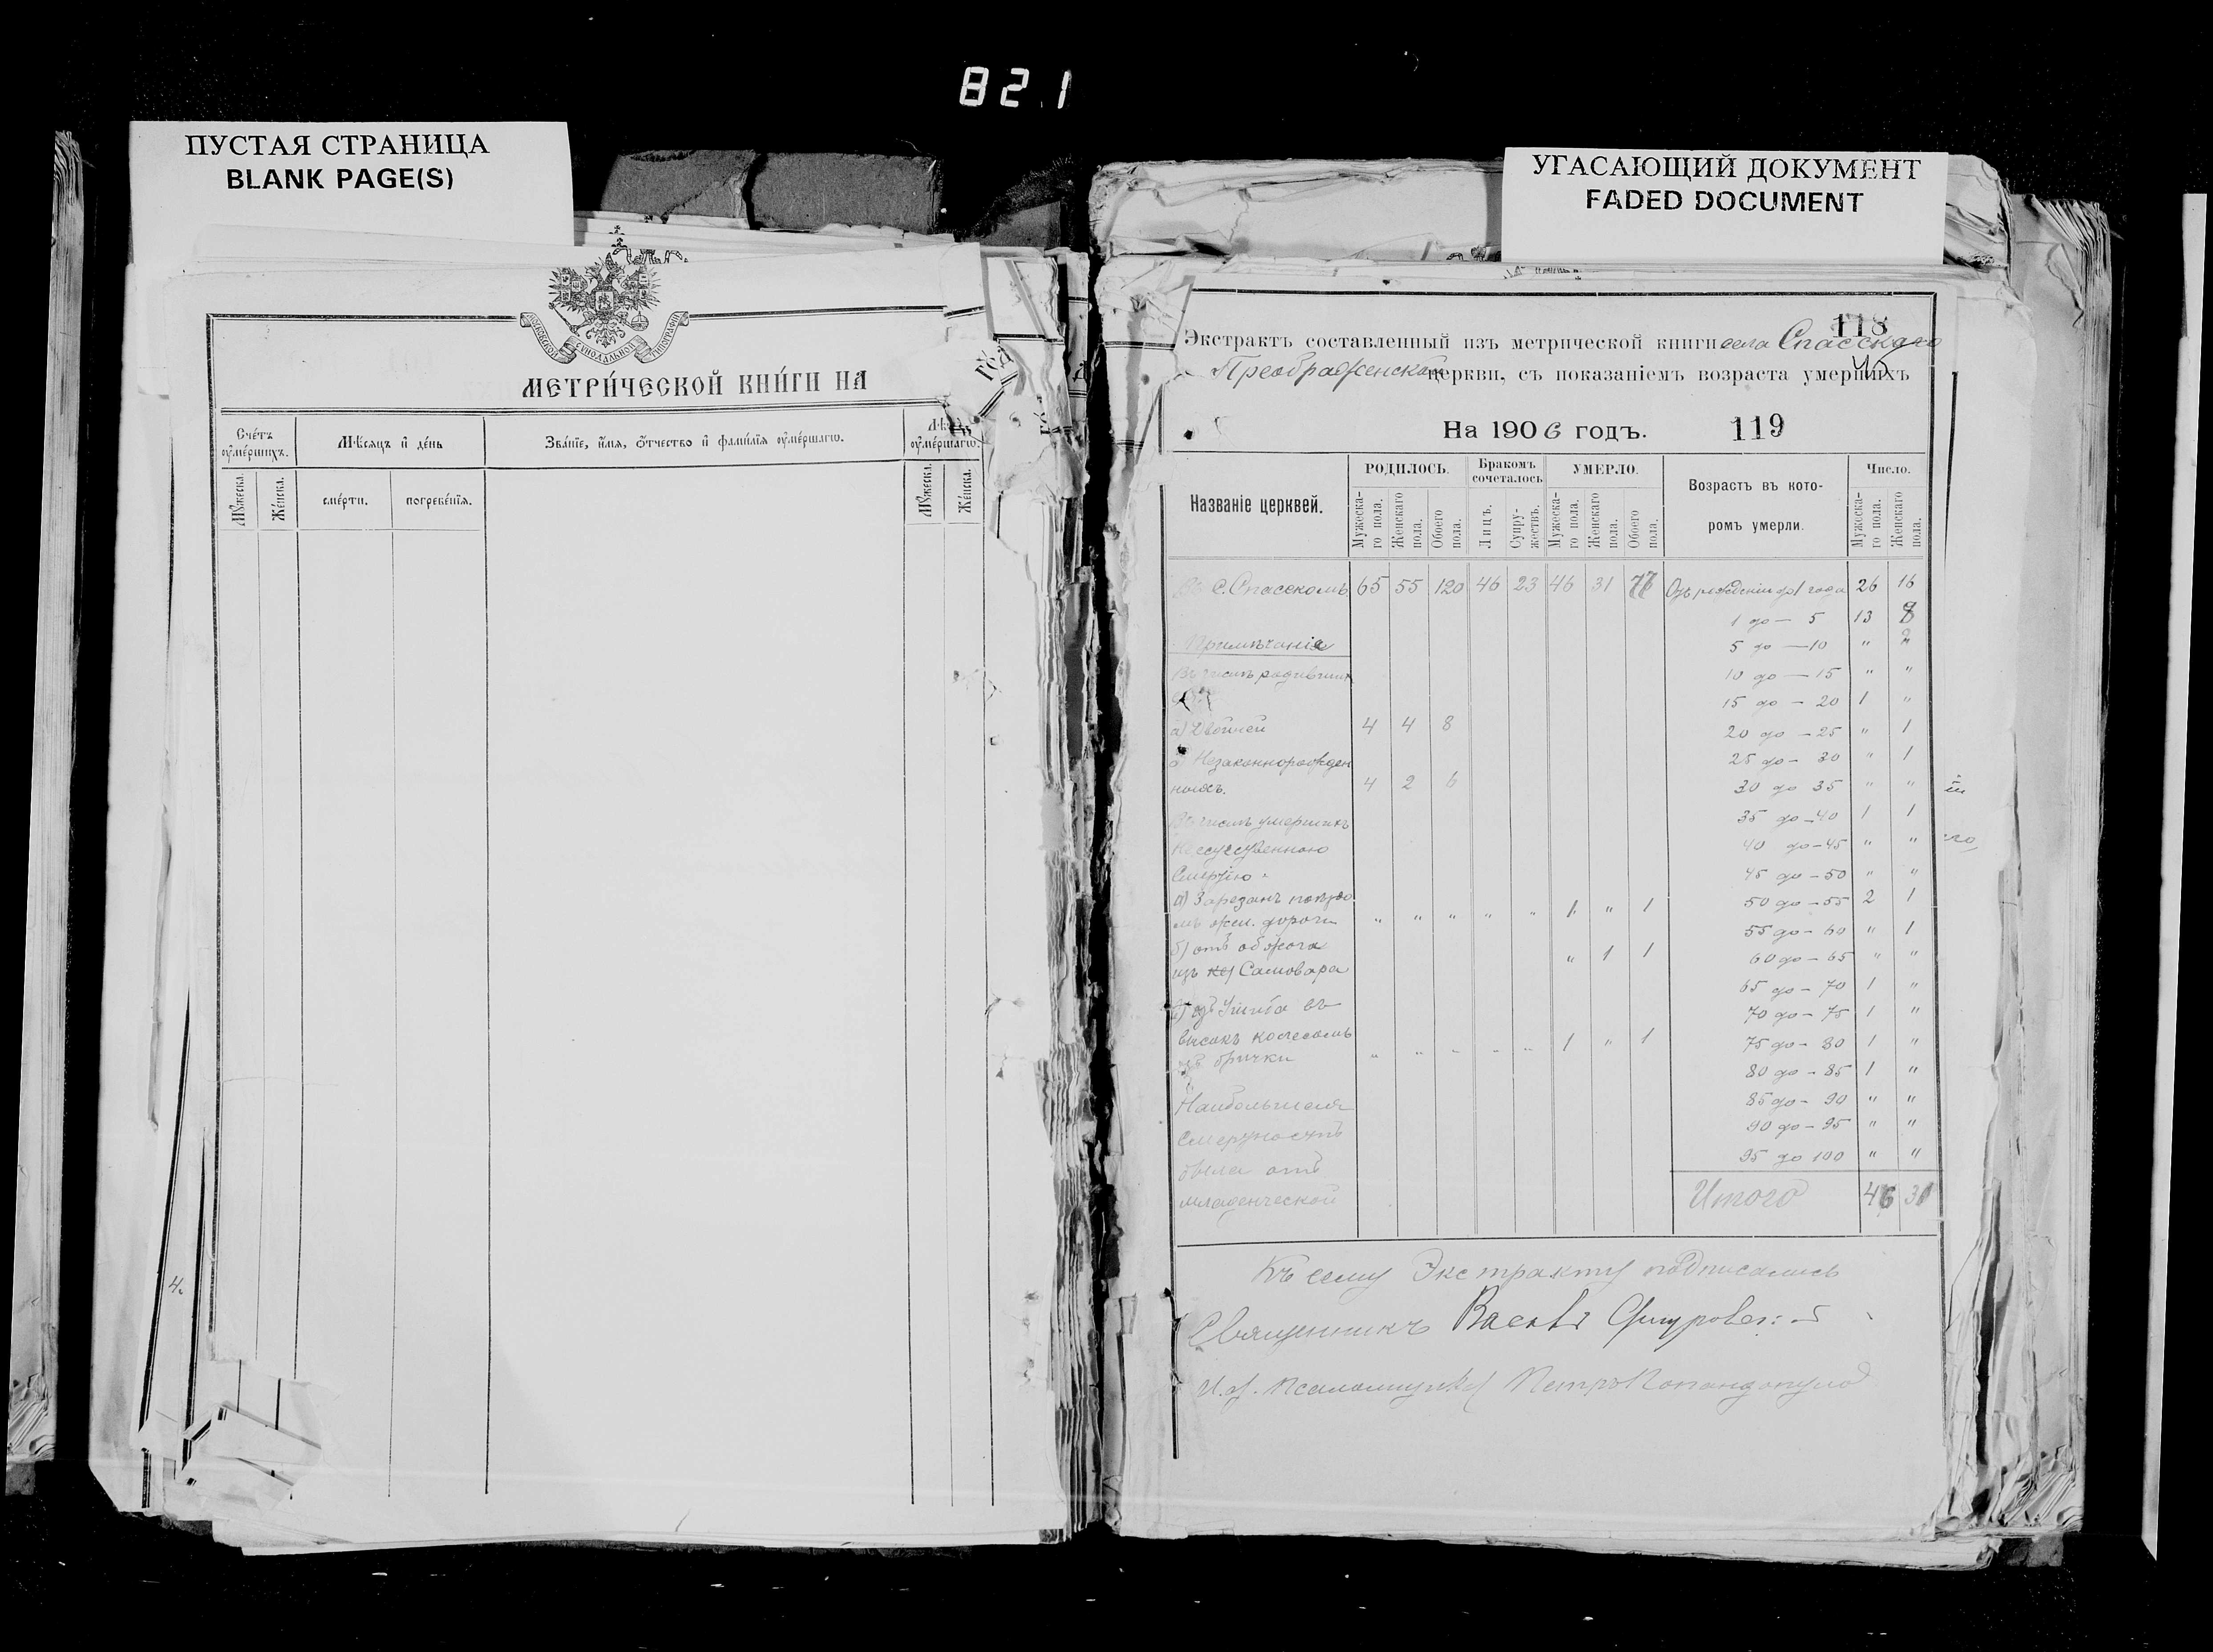 821
ПУСТАЯ СТРАНИЦА
BLANK PAGE(S)
УГАСАЮЩИЙ ДОКУМЕНТ
FADED DOCUMENT
МОСКОВСКОЙ СѴНОДАЛЬНОЙ ТИПОГРАФІИ
МЕТРИ́ЧЕСКОЙ КНИ́ГИ НА
Сче́тъ ᲂумершихъ.
Мѣсяцъ и де́нь
Зва́нїе, и́мя, ѻ҆́тчество и фами́лїя ᲂуме́ршагѡ.
ᲂуме́ршагѡ.
Мꙋжеска.
Же́нска.
сме́рти.
погребе́нїя.
Мꙋжеска.
Же́нска.
4.
118
Экстрактъ составленный изъ метрической книги села Спасскаго
Преображенской церкви, съ показаніемъ возраста умершихъ
45
На 1906 годъ.
119
Названіе церквей.
РОДИЛОСЬ.
Бракомъ сочеталось
УМЕРЛО.
Возрастъ въ кото-
ромъ умерли.
Число.
Мужеска-го пола.
Женскаго пола.
Обоего пола.
Лицъ.
Супру-жествъ.
Мужеска-го пола.
Женскаго пола.
Обоего пола.
Мужеска-го пола.
Женскаго пола.
Въ с. Спасскомъ 65 55 120 46 23 46 31 77 Отъ рожденія до 1 года 26 16
1 до — 5 13 8
Примѣчаніе 5 до — 10 " 2
Въ числѣ родивших 10 до — 15 " "
15 до — 20 1 "
а) Двойней 4 4 8 20 до — 25 " 1
б) Незаконнорожден 25 до — 30 " 1
ныхъ. 4 2 6 30 до 35 " "
Въ числѣ умершихъ 35 до — 40 1 1
40 до — 45 " "
Смертію 45 до — 50 " "
а) Зарезанъ поѣздо 50 до — 55 2 1
мъ жел. дороги " " " " " 1 " 1
55 до — 60 " 1
б) отъ обжога
изъ Самовара " 1 1 60 до — 65 " "
65 до — 70 1 "
Ушиба въ 70 до — 75 1 "
високъ колесомъ 75 до — 80 1 "
брички " " " " " 1 " 1
80 до — 85 1 "
Наибольшая 85 до — 90 " "
смертность 90 до — 95 " "
была отъ 95 до 100 " "
младенческой Итого 46 31
Къ сему Экстракту подписались
Священникъ
И. д. псаломщика Петръ Попандопуло